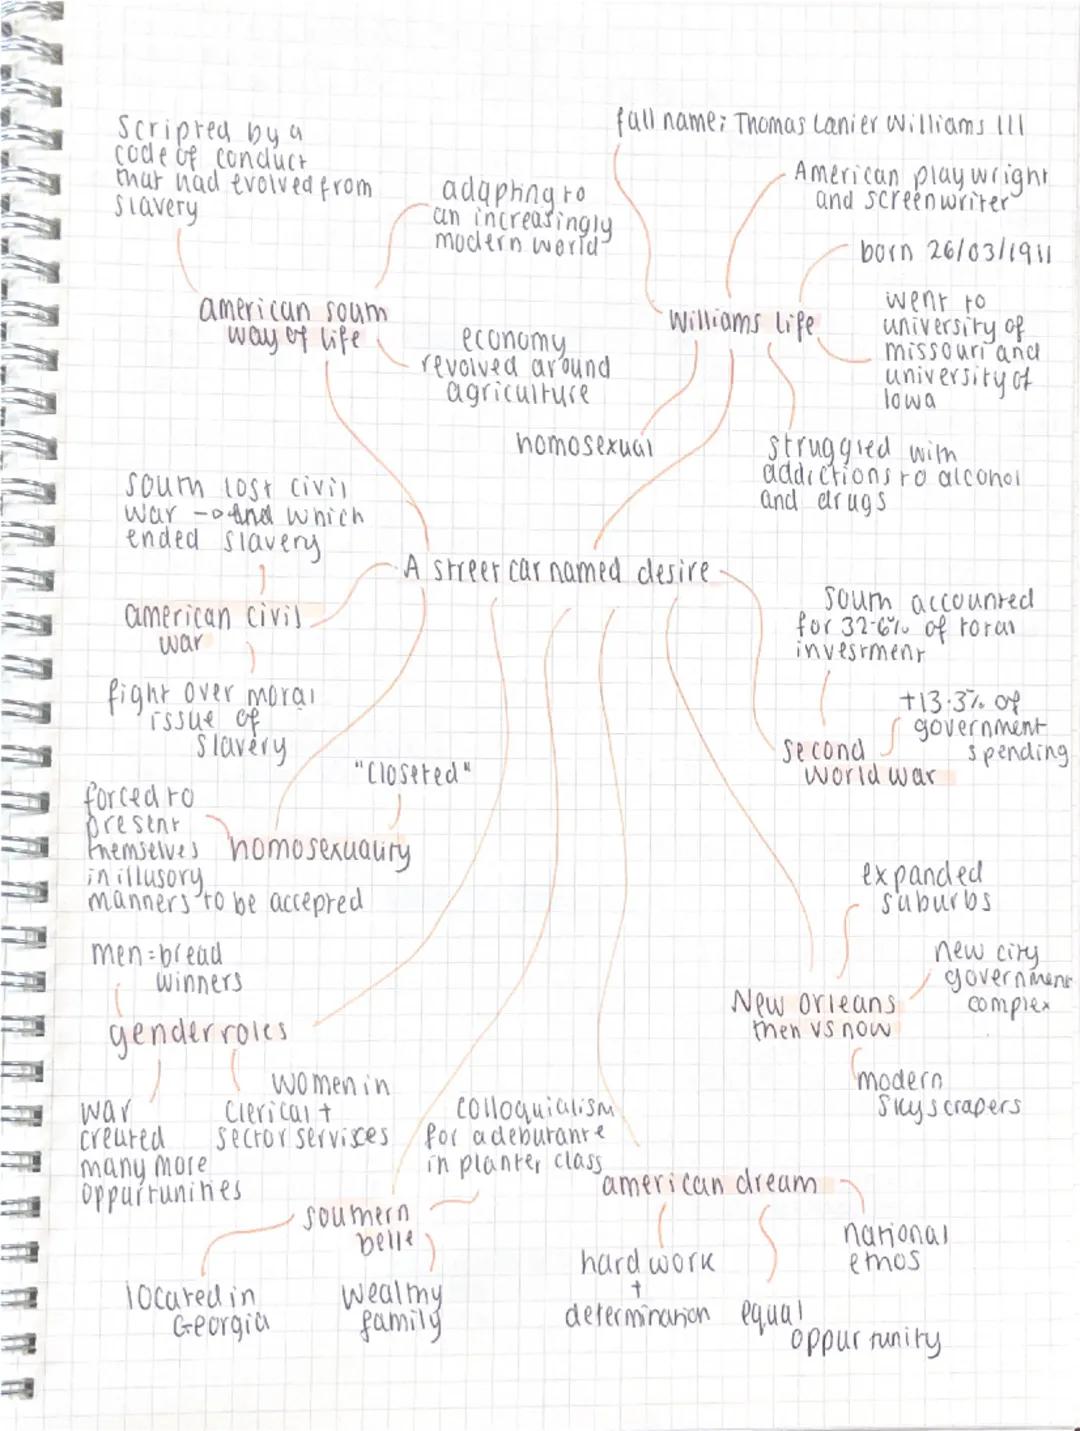 full name: Thomas Lanier Williams III
Scripted by a
code of conduct
that had evolved from
slavery
American playwright
and screenwriter
adapting to
an increasingly
modern world
born 26/03/1911
american south
way of life
Williams life
went to
university of
missouri and
university of
Iowa
economy
revolved around
agriculture
homosexual
struggled with
addictions to alcohol
and drugs
south lost civil
war → and which
ended slavery
A street car named desire
american civil
war
south accounted
for 32.6% of total
investment
fight over moral
issue of
slavery
+13.3% of
government
spending
second
world war
"closeted"
forced to
present
themselves
in illusory
manners to be accepted
homosexuality
expanded
suburbs
men = bread
winners
new city
government
complex
gender roles
New orleans
then vs now
women in
clerical +
sector servises
war
created
many more
oppurtunities
modern
skyscrapers
colloquialism
for a debutante
in planter class
american dream
southern
belle
national
ethos
hard work
+
determination
equal
oppurtunity
located in
Georgia
wealthy
family